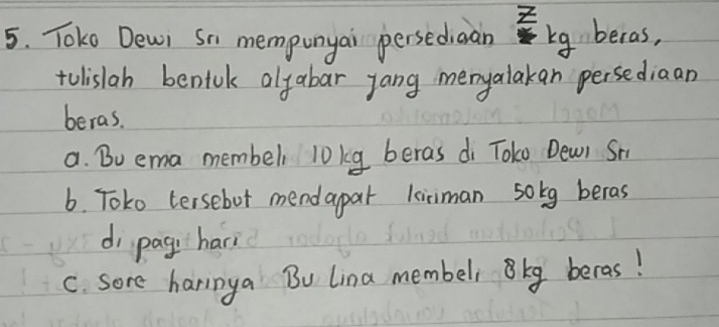 5. Toko Dewi Sri mempunyai persediaan z kg beras,
tulislah bentuk aljabar yang menyalakan persediaan
beras.
a. Bu ema membeli 10 kg beras di Toko Dewi Sri
b. Toko tersebut mendapat kiriman 50 kg beras
di pagi hari
c. Sore harinya Bu Lina membeli 8 kg beras!